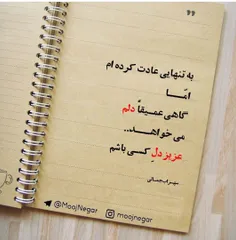 به تنهایی عادت کرده ام
امّا
گاهی عمیقاً دلم
می خواهد..
عزیز دل کسی باشم
@MoojNegar moojnegar